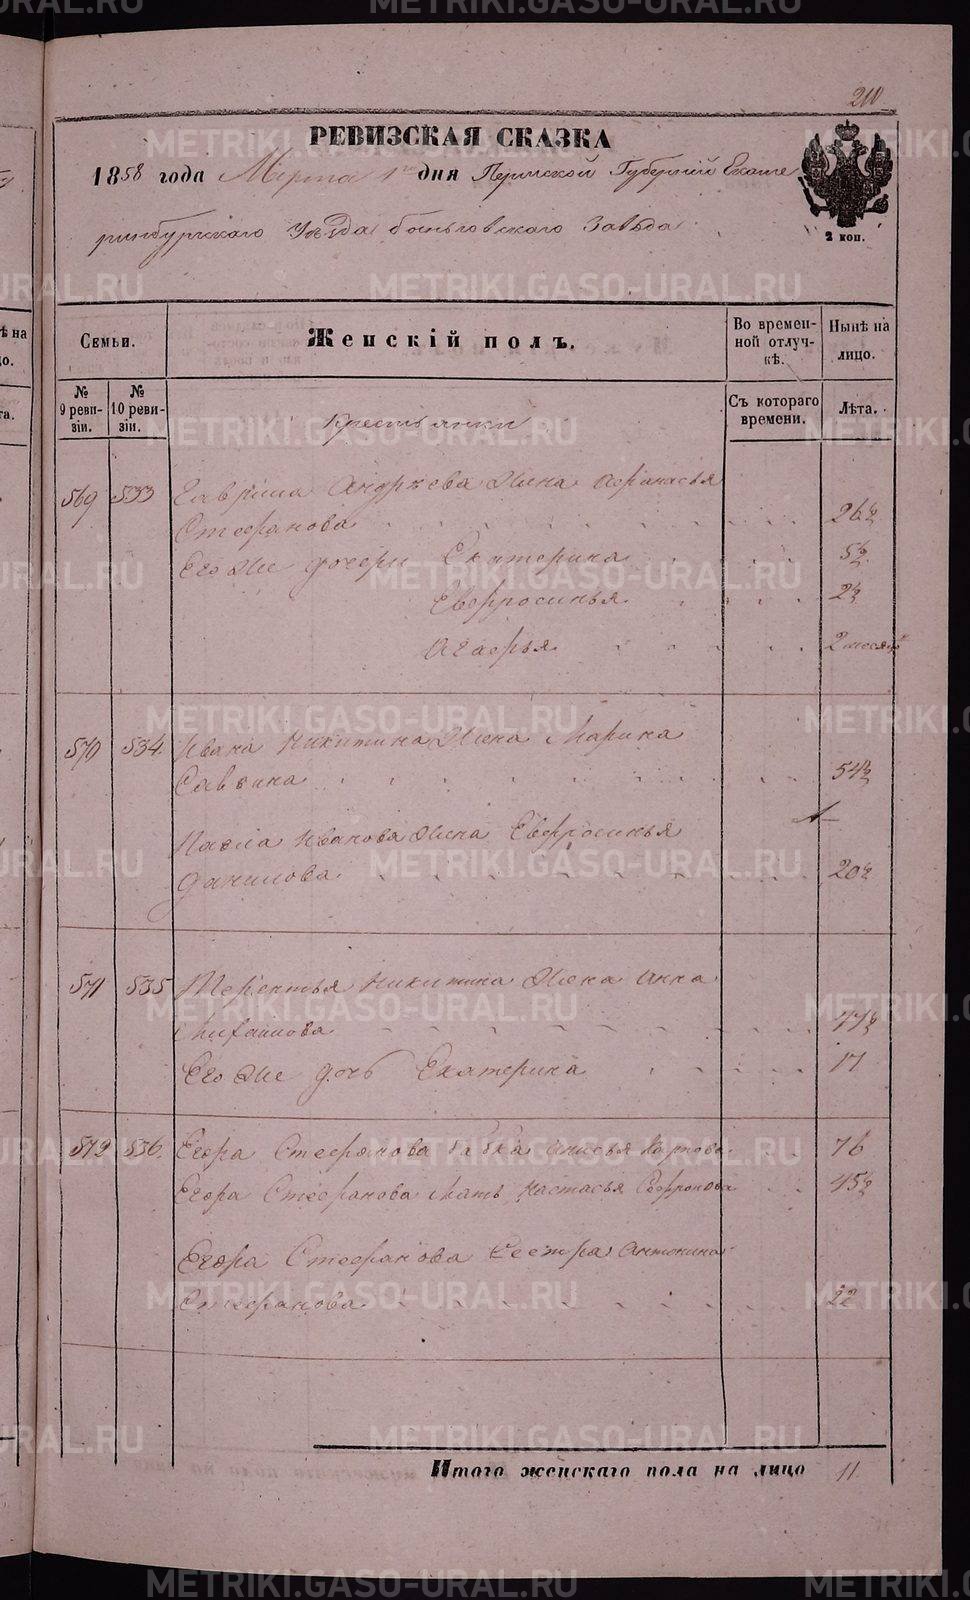 210
РЕВИЗСКАЯ СКАЗКА
1858 года Марта 1го дня Пермской Губернии Екате
ринбургского Уезда Быньговского Завода
2 коп.
Семьи.
Женскій полъ.
Во времен-
ной отлуч-
кѣ.
Нынѣ на
лицо.
№
9 реви-
зіи.
№
10 реви-
зіи.
Съ котораго
времени.
Лѣта.
Крестьянки
569 533 Гаврила Андреева Жена Афанасья
Стефанова 26½
Его же дочери Екатерина 5½
Евфросинья 2½
Агафья 2 месяца
570 534. Ивана Никитина Жена Марина
Саввина 54½
Павла Иванова Жена Евфросинья
Данилова 20½
571 535 Терентья Никитина Жена Анна
Михайлова 47½
Его же дочь Екатерина 17
572 536. Егора Стефанова бабка Анисья Карпова 76
Егора Стефанова Мать Настасья 45½
Егора Стефанова Сестра Антонина
Стефанова 22
Итого женскаго пола на лицо 11
METRIKI.GASO-URAL.RU